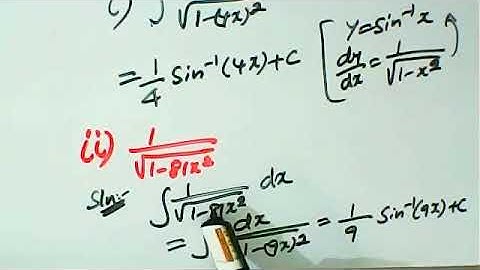 i) ∫ / √1-(4x)²
= 1/4 sin⁻¹(4x)+c
y=sin⁻¹x
dy/dx = 1/√1-x²
(ii) 1/√1-81x²
Sln:- ∫ 1/√1-81x² dx
= ∫ dx/√1-(9x)² = 1/9 sin⁻¹(9x)+c